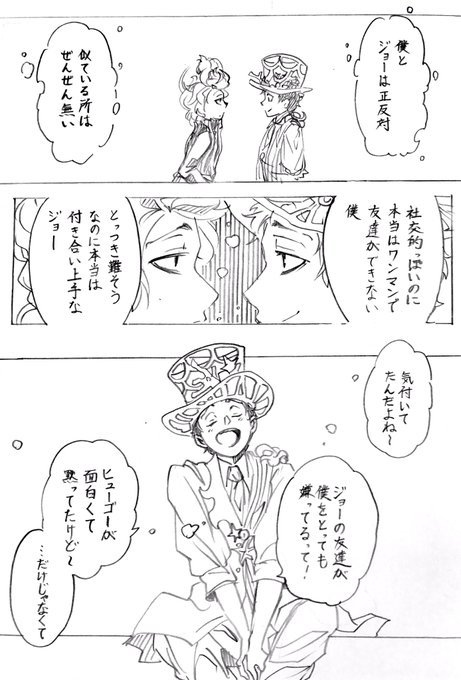 僕と
ジョーは正反対
似ている所は
ぜんぜん無い
社交的っぽいのに
本当はワンマンで
友達ができない
僕
とっつき難そう
なのに本当は
付き合い上手な
ジョー
気付いて
たんだよね〜
ジョーの友達が
僕をとっても
嫌ってるって!
ヒューゴーが
面白くて
黙ってたけど〜
…だけじゃなくて